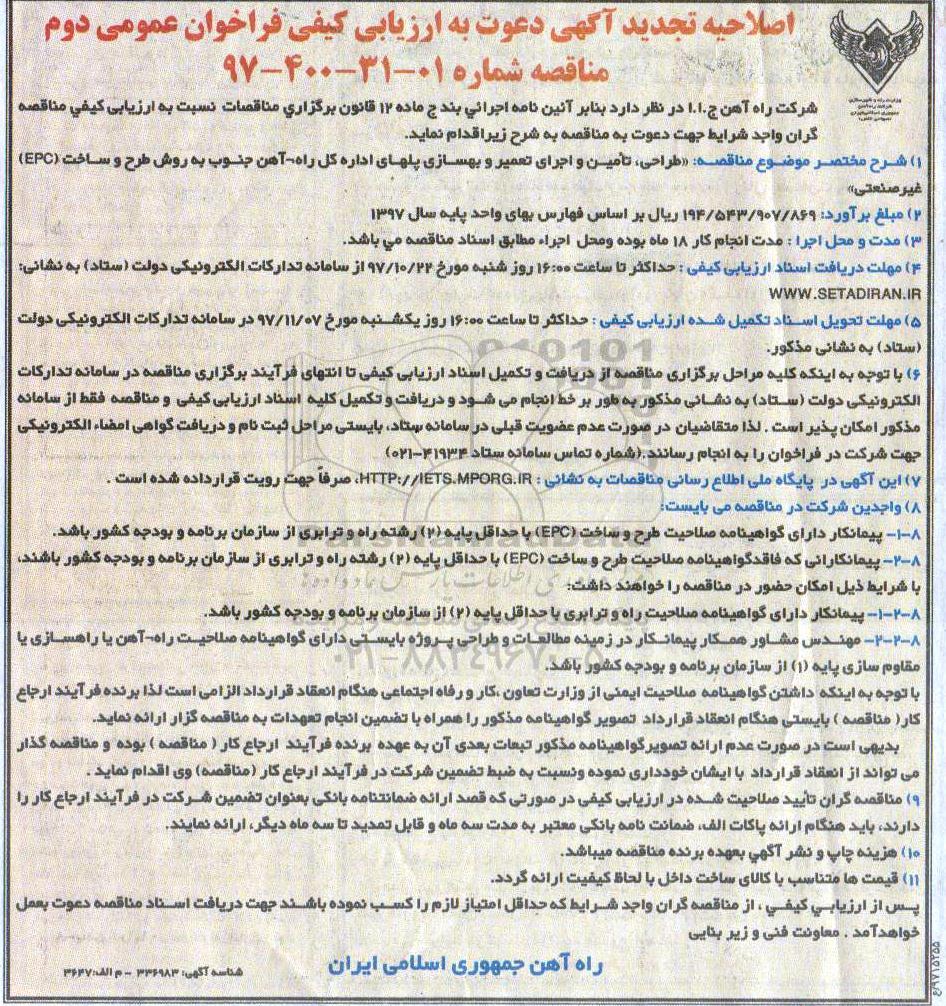 اصلاحیه تجدید آگهی دعوت به ارزیابی کیفی فراخوان عمومی دوم
مناقصه شماره ۰۱-۳۱-۴۰۰-۹۷
شرکت راه آهن ج.ا.ا در نظر دارد بنابر آئین نامه اجرائی بند ج ماده ۱۲ قانون برگزاري مناقصات نسبت به ارزیابی کیفي مناقصه
گران واجد شرایط جهت دعوت به مناقصه به شرح زیراقدام نماید.
۱) شرح مختصر موضوع مناقصه: «طراحی، تأمین و اجرای تعمیر و بهسازی پلهای اداره کل راه-آهن جنوب به روش طرح و ساخت (EPC)
غیرصنعتی»
۲) مبلغ برآورد: ۱۹۴/۵۴۳/۹۰۷/۸۶۹ ریال بر اساس فهارس بهای واحد پایه سال ۱۳۹۷
۳) مدت و محل اجرا : مدت انجام کار ۱۸ ماه بوده ومحل اجراء مطابق اسناد مناقصه مي باشد.
۴) مهلت دریافت اسناد ارزیابی کیفی : حداکثر تا ساعت ۱۶:۰۰ روز شنبه مورخ ۹۷/۱۰/۲۲ از سامانه تدارکات الکترونیکی دولت (ستاد) به نشانی:
WWW.SETADIRAN.IR
۵) مهلت تحویل اسناد تکمیل شده ارزیابی کیفی : حداکثر تا ساعت ۱۶:۰۰ روز یکشنبه مورخ ۹۷/۱۱/۰۷ در سامانه تدارکات الکترونیکی دولت
(ستاد) به نشانی مذکور.
۶) با توجه به اینکه کلیه مراحل برگزاری مناقصه از دریافت و تکمیل اسناد ارزیابی کیفی تا انتهای فرآیند برگزاری مناقصه در سامانه تدارکات
الکترونیکی دولت (ستاد) به نشانی مذکور به طور بر خط انجام می شود و دریافت و تکمیل کلیه اسناد ارزیابی کیفی و مناقصه فقط از سامانه
مذکور امکان پذیر است . لذا متقاضیان در صورت عدم عضویت قبلی در سامانه ستاد، بایستی مراحل ثبت نام و دریافت گواهی امضاء الکترونیکی
جهت شرکت در فراخوان را به انجام رسانند.(شماره تماس سامانه ستاد ۴۱۹۳۴-۰۲۱)
۷) این آگهی در پایگاه ملی اطلاع رسانی مناقصات به نشانی : HTTP://IETS.MPORG.IR، صرفاً جهت رویت قرارداده شده است .
۸) واجدین شرکت در مناقصه می بایست:
۸-۱- پیمانکار دارای گواهینامه صلاحیت طرح و ساخت (EPC) با حداقل پایه (۲) رشته راه و ترابری از سازمان برنامه و بودجه کشور باشد.
۸-۲- پیمانکارانی که فاقدگواهینامه صلاحیت طرح و ساخت (EPC) با حداقل پایه (۲) رشته راه و ترابری از سازمان برنامه و بودجه کشور باشند،
با شرایط ذیل امکان حضور در مناقصه را خواهند داشت:
۸-۲-۱- پیمانکار دارای گواهینامه صلاحیت راه و ترابری با حداقل پایه (۲) از سازمان برنامه و بودجه کشور باشد.
۸-۲-۲- مهندس مشاور همکار پیمانکار در زمینه مطالعات و طراحی پروژه بایستی دارای گواهینامه صلاحیت راه-آهن یا راهسازی یا
مقاوم سازی پایه (۱) از سازمان برنامه و بودجه کشور باشد.
با توجه به اینکه داشتن گواهینامه صلاحیت ایمنی از وزارت تعاون ،کار و رفاه اجتماعی هنگام انعقاد قرارداد الزامی است لذا برنده فرآیند ارجاع
کار( مناقصه ) بایستی هنگام انعقاد قرارداد تصویر گواهینامه مذکور را همراه با تضمین انجام تعهدات به مناقصه گزار ارائه نماید.
بدیهی است در صورت عدم ارائه تصویرگواهینامه مذکور تبعات بعدی آن به عهده برنده فرآیند ارجاع کار ( مناقصه ) بوده و مناقصه گذار
می تواند از انعقاد قرارداد با ایشان خودداری نموده ونسبت به ضبط تضمین شرکت در فرآیند ارجاع کار (مناقصه) وی اقدام نماید .
۹) مناقصه گران تأیید صلاحیت شده در ارزیابی کیفی در صورتی که قصد ارائه ضمانتنامه بانکی بعنوان تضمین شرکت در فرآیند ارجاع کار را
دارند، باید هنگام ارائه پاکات الف، ضمانت نامه بانکی معتبر به مدت سه ماه و قابل تمدید تا سه ماه دیگر، ارائه نمایند.
۱۰) هزینه چاپ و نشر آگهي بعهده برنده مناقصه میباشد.
۱۱) قیمت ها متناسب با کالای ساخت داخل با لحاظ کیفیت ارائه گردد.
پس از ارزیابي کیفي ، از مناقصه گران واجد شرایط که حداقل امتیاز لازم را کسب نموده باشند جهت دریافت اسناد مناقصه دعوت بعمل
خواهدآمد . معاونت فنی و زیر بنایی
راه آهن جمهوری اسلامی ایران
شناسه آگهی: ۳۳۶۹۸۳ - م الف:۳۶۴۷
۰۲۱-۸۸۳۴۹۶۷۰